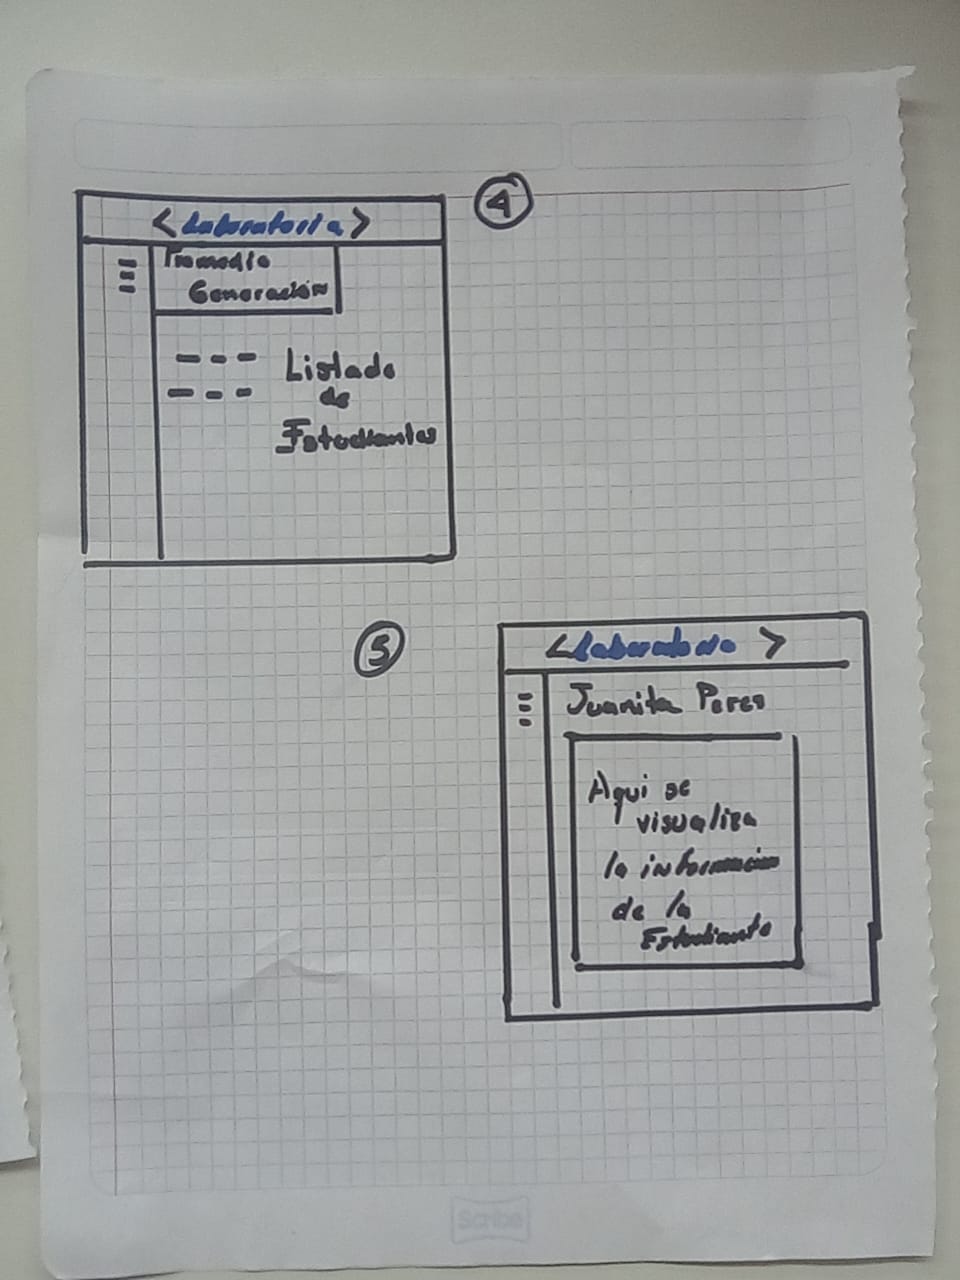 4
<Laboratoria>
Promedio
Generación
Listado
de
Estudiantes
5
<Laboratoria>
Juanita Perez
Aqui se
visualiza
la informacion
de la
Estudiante
Scribe